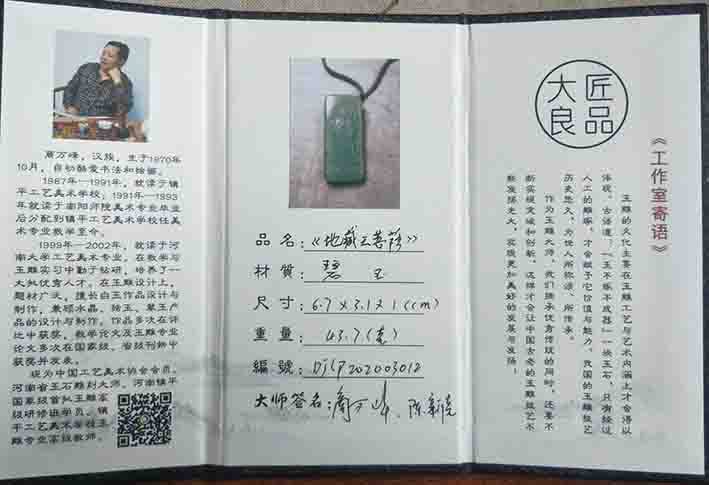 周万峰，汉族，生于1970年
10月，自幼酷爱书法和绘画。
1987年—1991年，就读于镇
平工艺美术学校，1991年—1993
年就读于南阳师院美术专业毕业
后分配到镇平工艺美术学校任美
术专业教学至今。
1999年—2002年，就读于河
南大学工艺美术专业，在教学与
玉雕实习中勤于钻研，培养了一
大批优秀人才。在玉雕设计上，
题材广泛，擅长白玉作品设计与
制作，兼顾水晶、独玉、翠玉产
品的设计与制作。作品多次在评
比中获奖，教学论文及玉雕专业
论文多次在国家级、省级刊物中
获奖并发表。
现为中国工艺美术协会会员，
河南省玉石雕刻大师，河南镇平
国家级首批玉雕高
级研修班学员，镇
平工艺美术学校玉
雕专业高级教师。
品名：《地藏王菩萨》
材質：碧玉
尺寸：6.7×3.1×1(cm)
重量：43.7(克)
編號：DJLP202003012
大师签名：周万峰、
大匠
良品
《工作室寄语》
玉雕的文化主要在玉雕工艺与艺术内涵上才会得以
体现，古语道：“玉不琢不成器”一块玉石，只有经过
人工的雕琢，才会赋予它价值与魅力。我国的玉雕技艺
历史悠久，为世人所称颂、所传承。
作为玉雕大师，我们継承优秀传统的同时，还要不
断实现突破和创新，这样才会让中国古老的玉雕技艺不
断发扬光大，实现更加美好的发展与发扬！